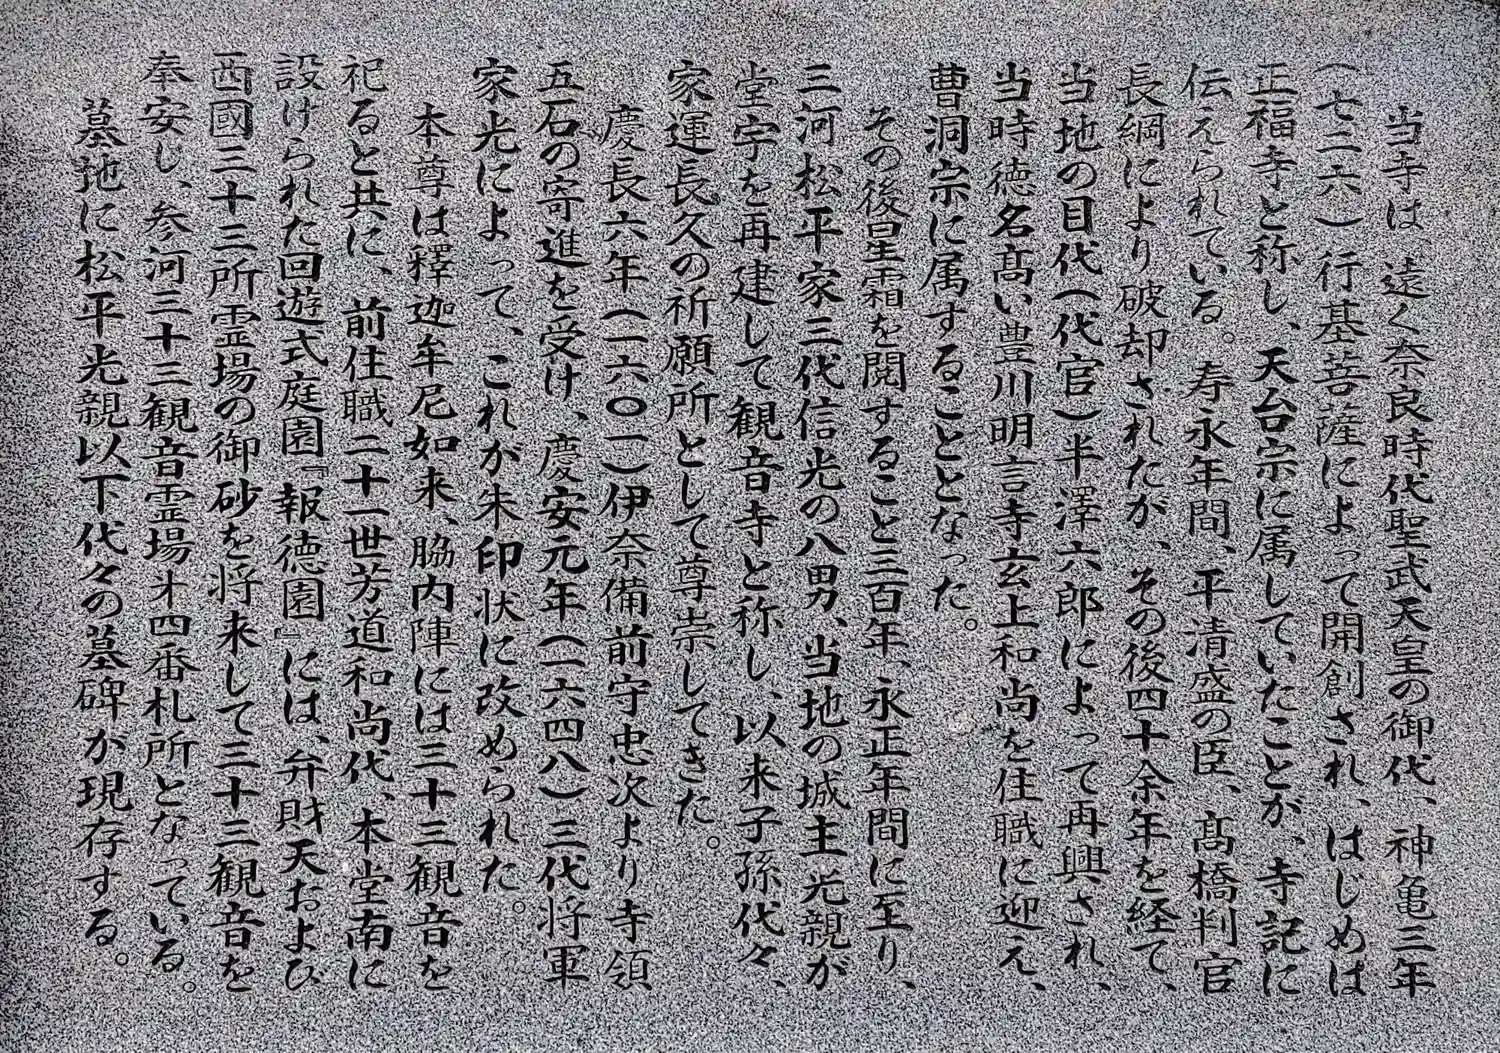 当寺は、遠く奈良時代聖武天皇の御代、神亀三年
（七二六）行基菩薩によって開創され、はじめは
正福寺と称し、天台宗に属していたことが、寺記に
伝えられている。寿永年間、平清盛の臣、髙橋判官
長綱により破却されたが、その後四十余年を経て、
当地の目代（代官）半澤六郎によって再興され、
当時徳名髙い豊川明言寺玄上和尚を住職に迎え、
曹洞宗に属することとなった。
その後星霜を閲すること三百年、永正年間に至り、
三河松平家三代信光の八男、当地の城主光親が
堂宇を再建して観音寺と称し、以来子孫代々、
家運長久の祈願所として尊崇してきた。
慶長六年（一六〇一）伊奈備前守忠次より寺領
五石の寄進を受け、慶安元年（一六四八）三代将軍
家光によって、これが朱印状に改められた。
本尊は釋迦牟尼如来、脇内陣には三十三観音を
祀ると共に、前住職二十一世芳道和尚代、本堂南に
設けられた回遊式庭園『報徳園』には、弁財天および
西國三十三所霊場の御砂を将来して三十三観音を
奉安し、参河三十三観音霊場㐧四番札所となっている。
墓地に松平光親以下代々の墓碑が現存する。